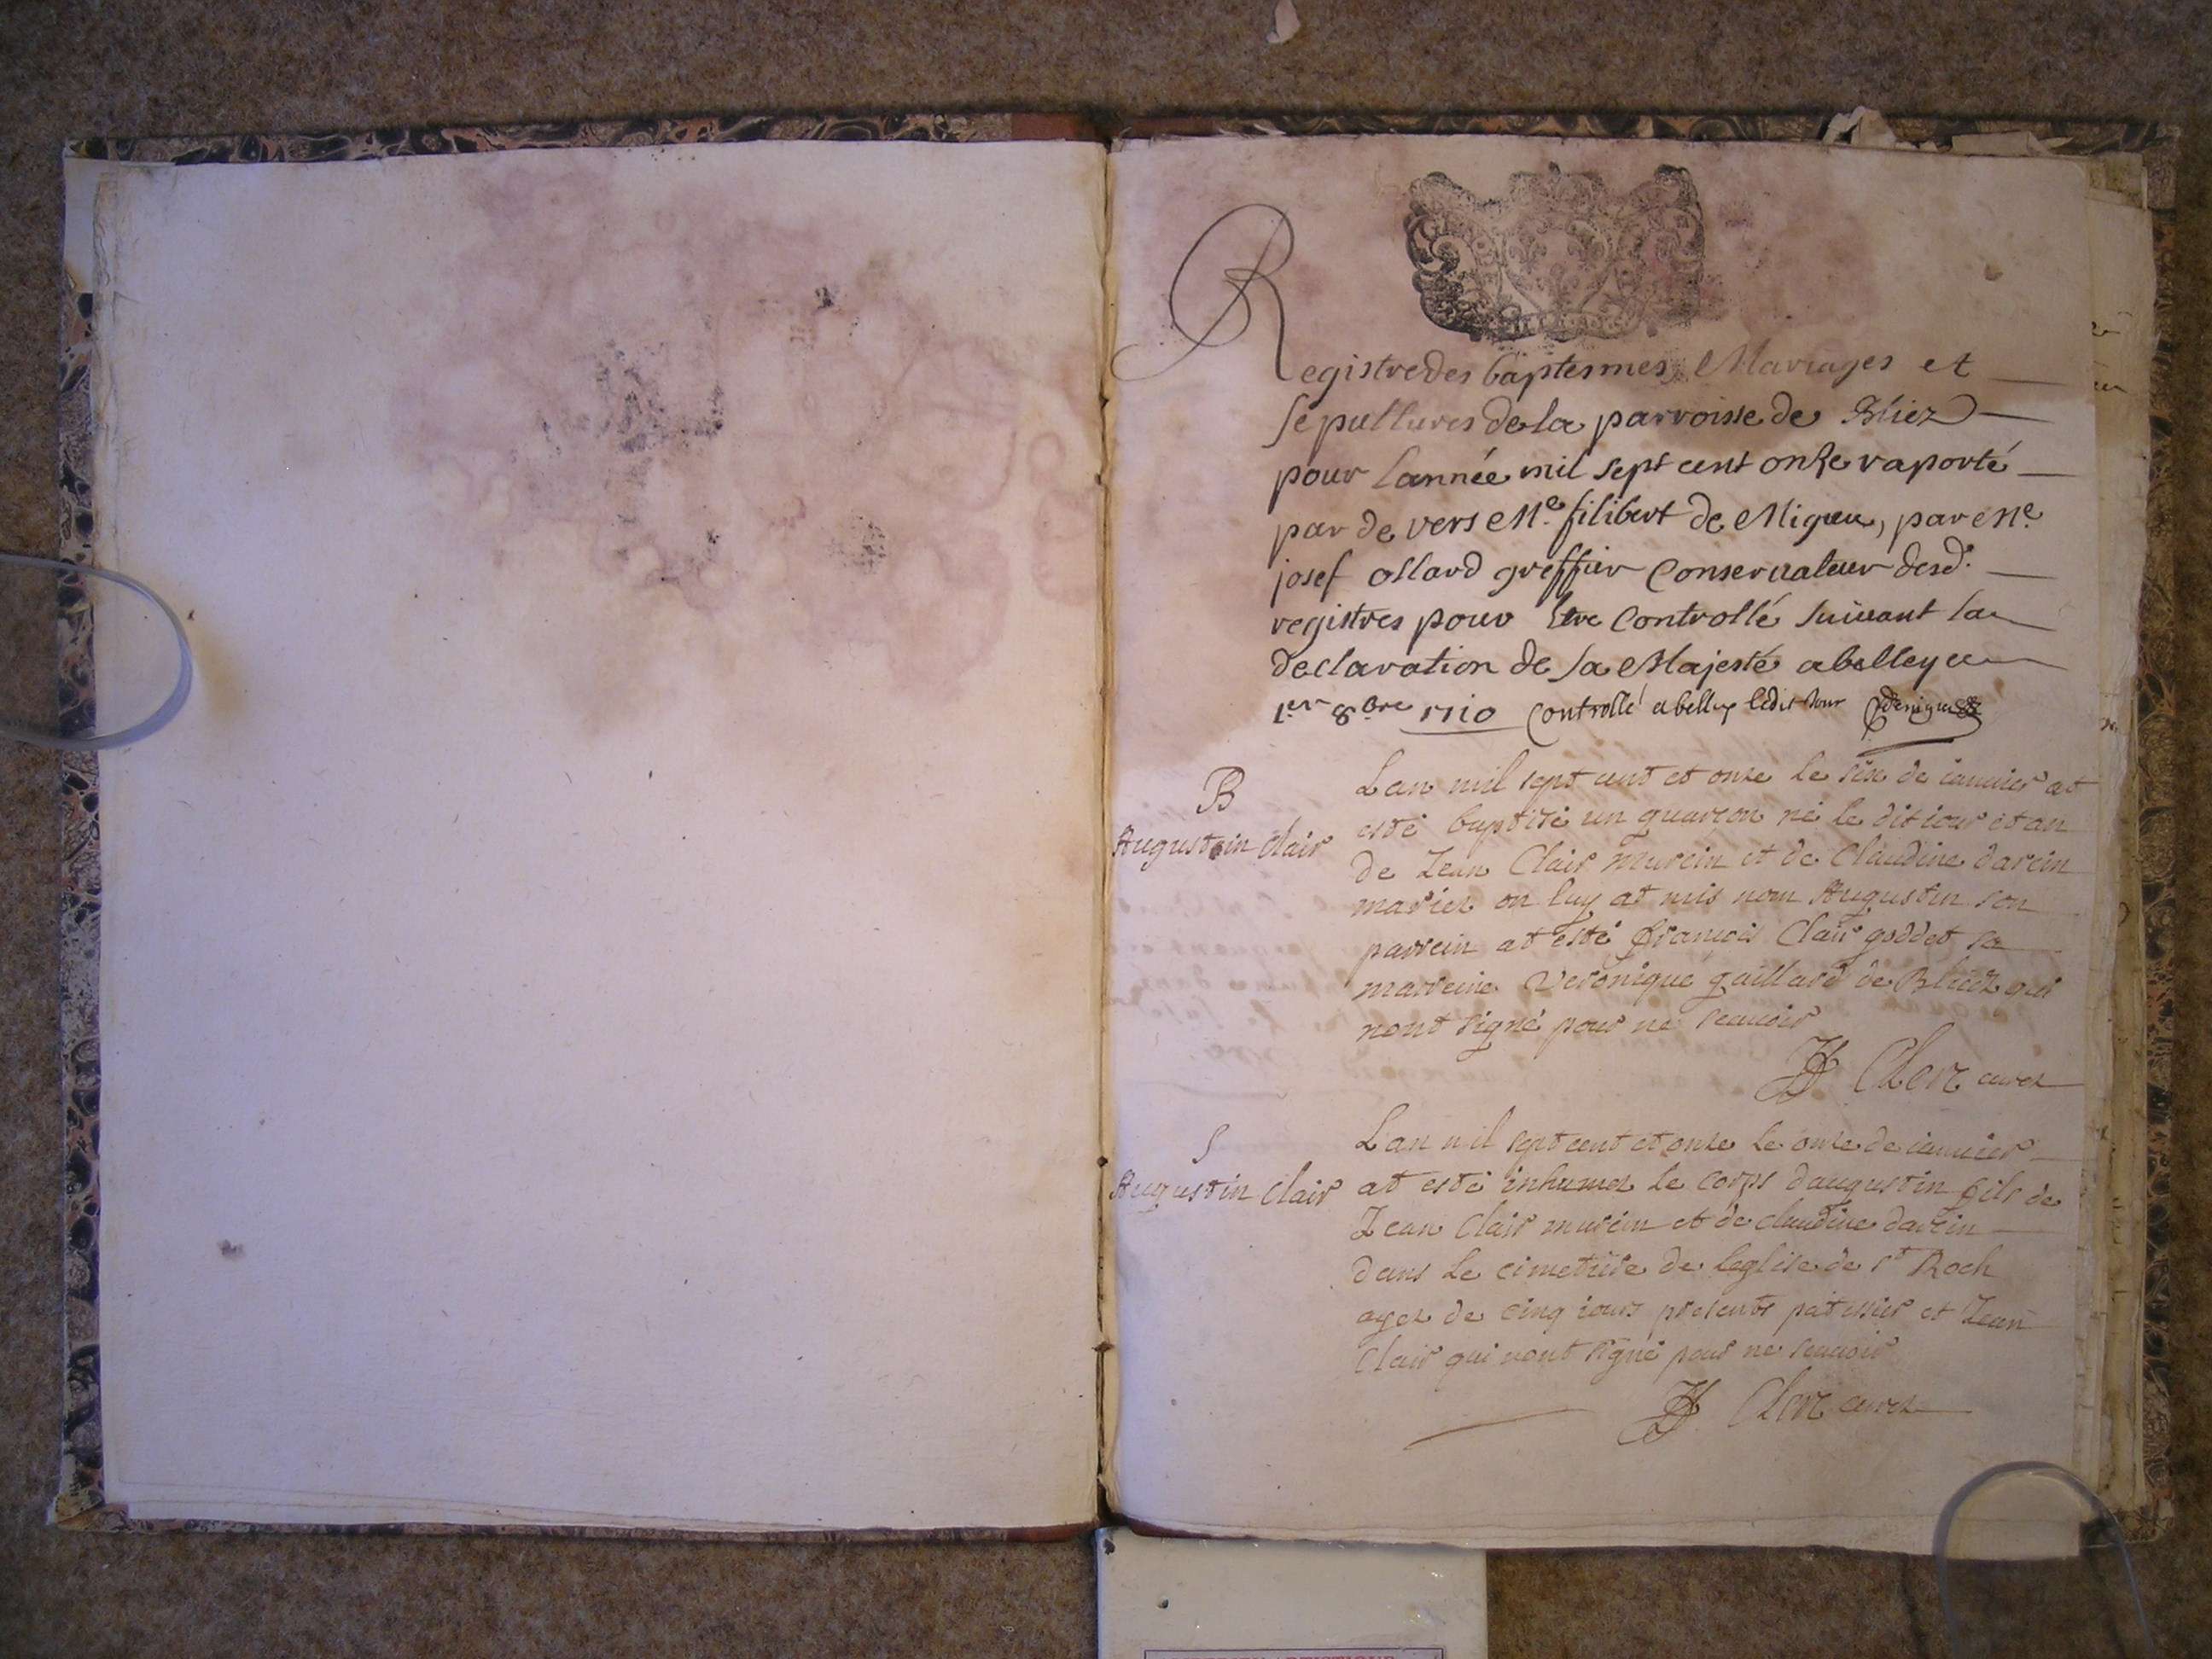 Registre des baptesmes Mariages et
sepultures de la parroisse de Bliez
pour lannée mil sept cent onze raporté
par de vers Me. filibert de Migieu, par Me.
josef ollard greffier Conservateur desd.
registres pour Etre Controllé suivant la
declaration de sa Majesté a belley ce
1er 8bre 1710 Controllé a belley ledit Jour
B
Augustin Clair
Lan mil sept cent et onze le six de ianvier at
esté baptisé un guarcon né le dit iour et an
de Jean Clair murcin et de Claudine darcin
mariez on luy at mis nom Augustin son
parrein at esté francois Clair goddet sa
marreine Veronique gaillard de Bliez qui
nont signé pour ne scavoir
Clerc curez
S
Augustin Clair
Lan mil sept cent et onze le onze de ianvier
at esté inhumez le corps daugustin fils de
Jean Clair murcin et de claudine darcin
dans le cimetiere de leglise de St Roch
agez de cinq iours presents patissier et Jean
Clair qui nont signé pour ne scavoir
Clerc curez